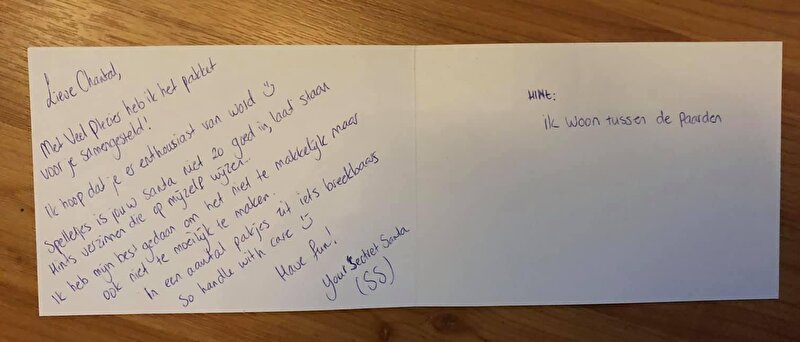 Lieve Chantal,
Met Veel Plezier heb ik het pakket
voor je samengesteld!
Ik hoop dat je er enthousiast van wordt ☺
Spelletjes is jouw santa niet zo goed in, laat staan
Hints verzinnen die op mijzelf wijzen.
Ik heb mijn best gedaan om het niet te makkelijk maar
ook niet te moeilijk te maken.
In een aantal pakjes zit iets breekbaars
So handle with care ☺
Have fun!
Your Secret Santa
(SS)
HINT:
ik woon tussen de paarden